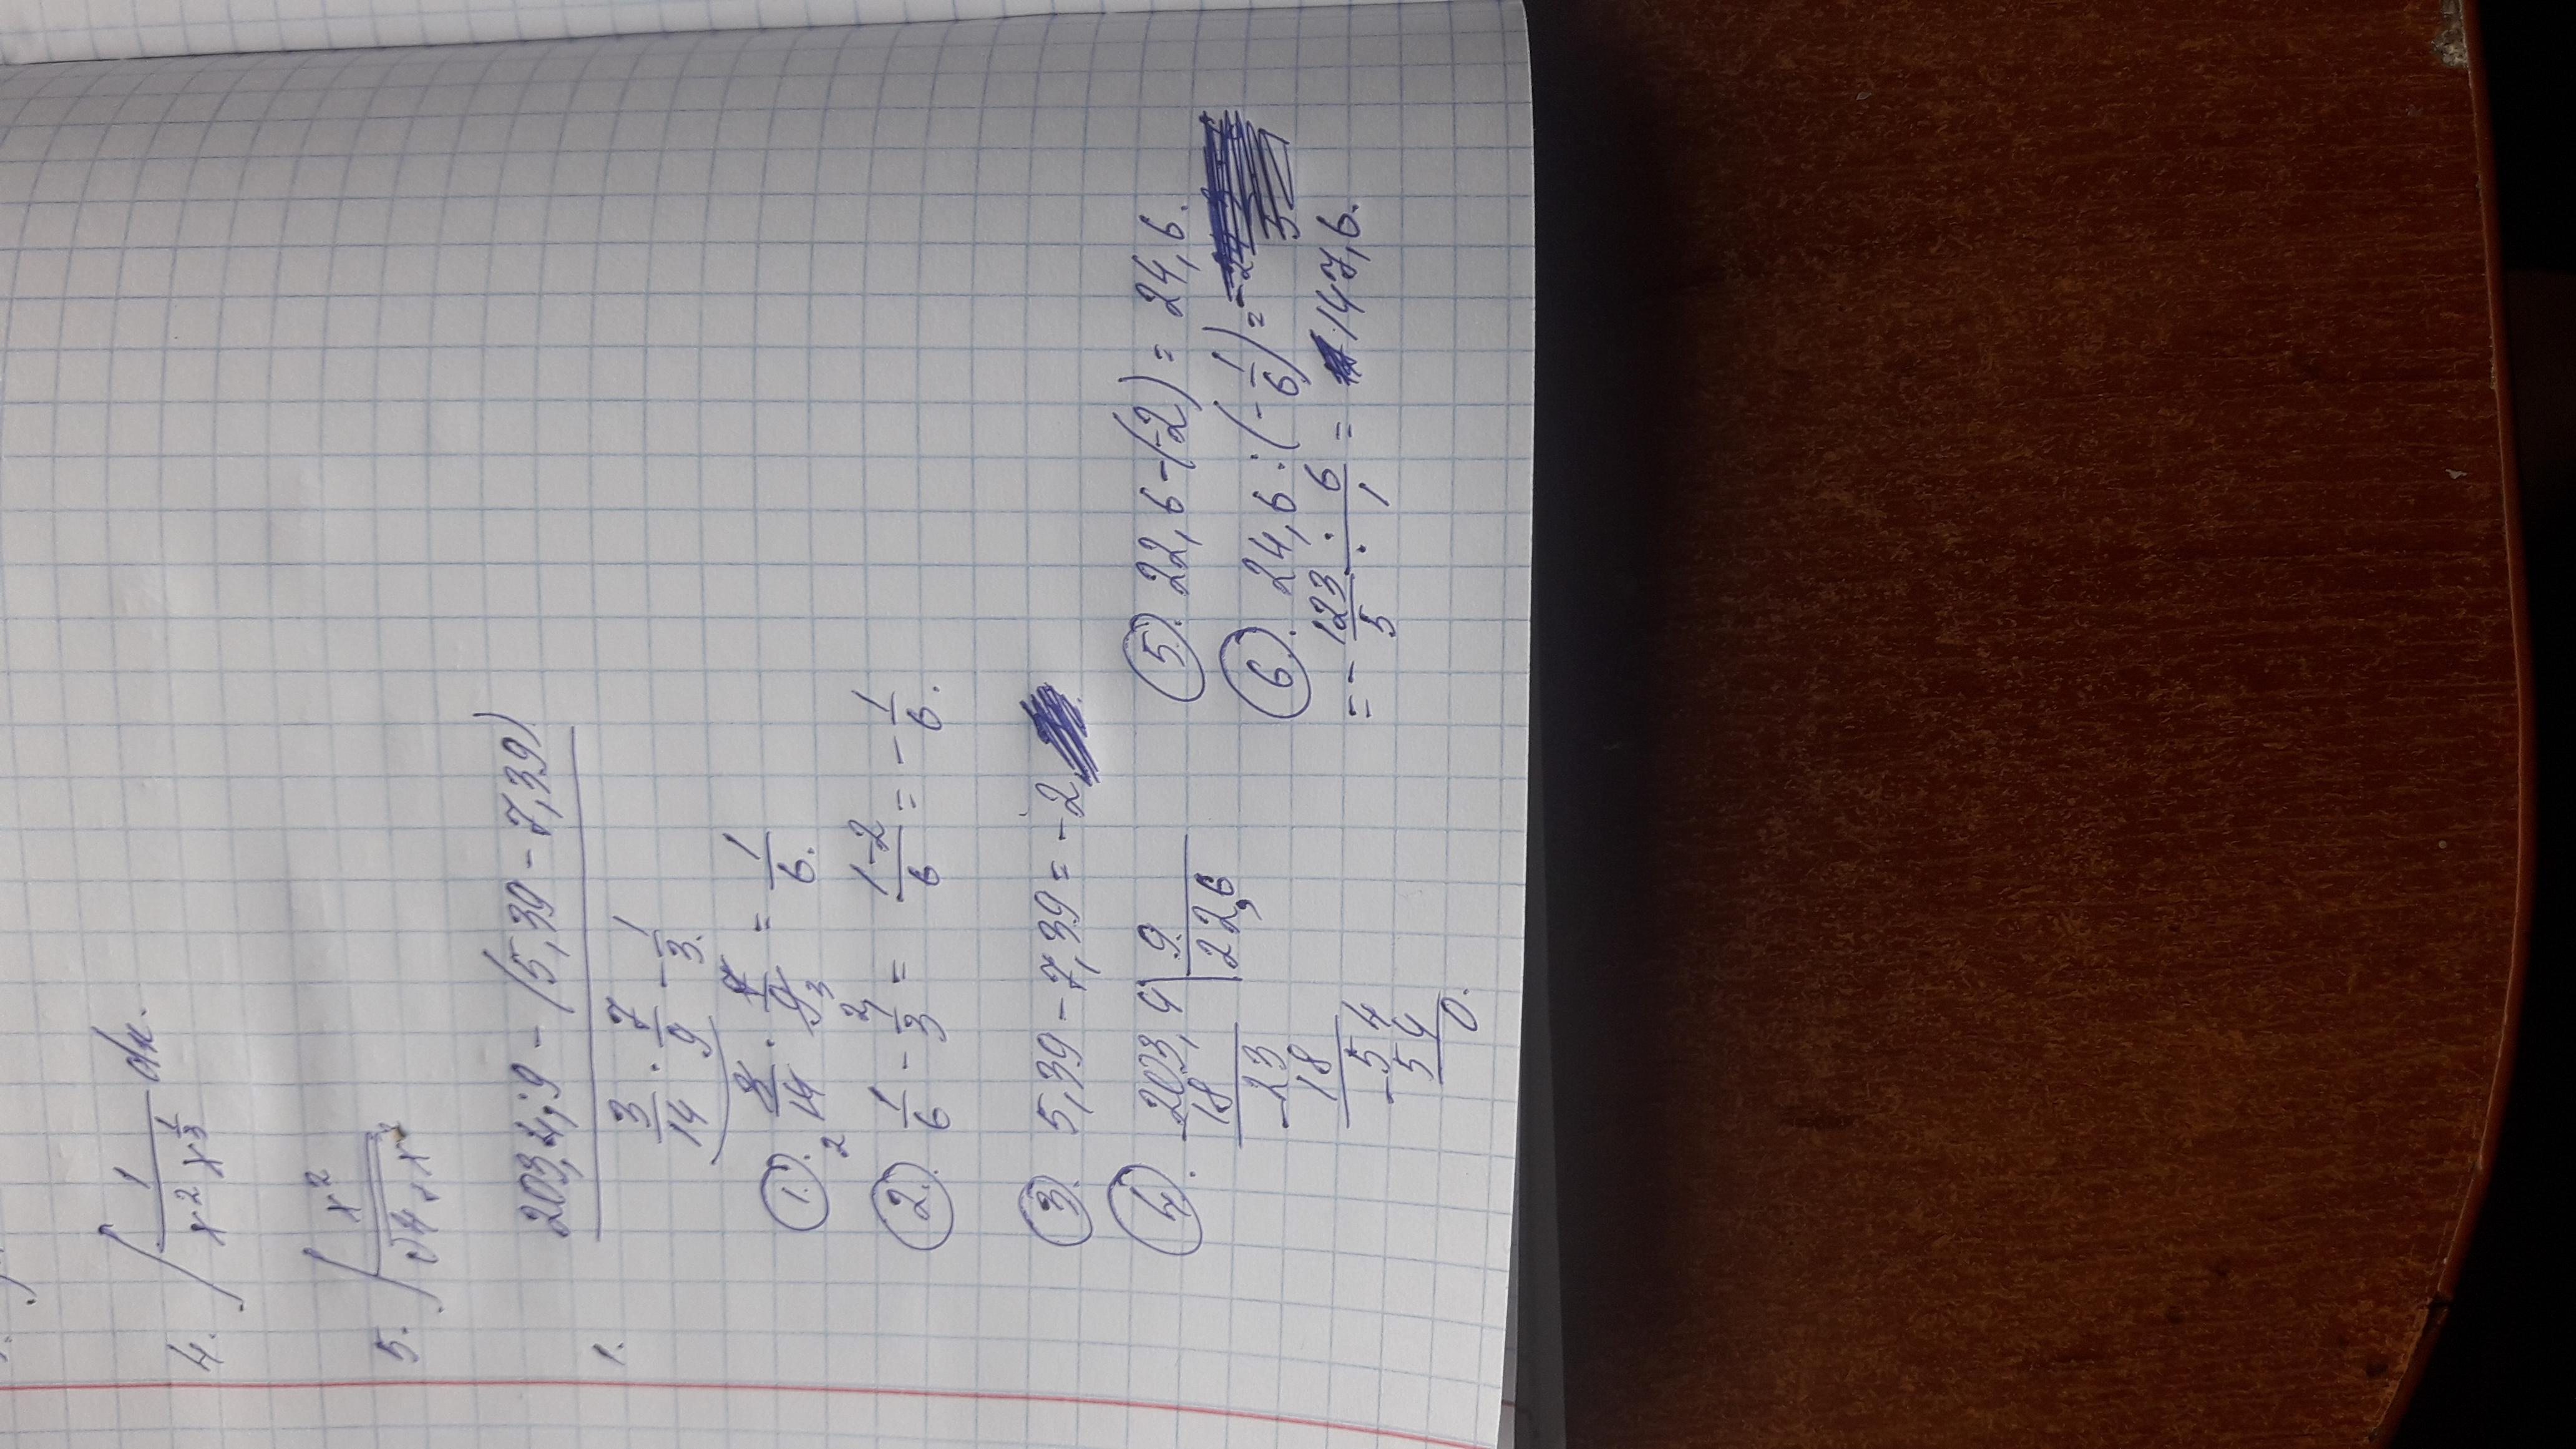 4. ∫ 1/(x² x^(1/3)) dx.
5. ∫ x²/√(4+x²)
1. (203,4:9 - (5,39 - 7,39))/(3/14 · 7/9 - 1/3).
①. 3/14 · 7/9 = 1/6.
②. 1/6 - 1/3 = (1-2)/6 = - 1/6.
③. 5,39 - 7,39 = -2
④. 203,4 | 9
18 | 22,6
-23
18
-54
54
0.
⑤. 22,6-(-2) = 24,6.
⑥. 24,6 : (- 1/6) =
= - 123/5 · 6/1 = 147,6.